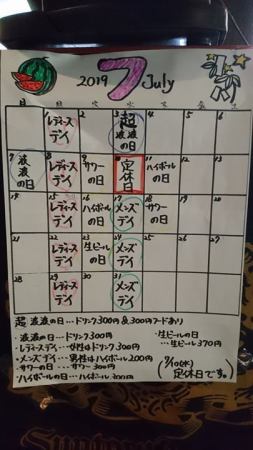 2019 7 July
日 月 火 水 木 金 土
1 レディースデイ 2 3 超波浪の日 4 5 6
7 波浪の日 8 レディースデイ 9 サワーの日 10 定休日 11 ハイボールの日 12 13
14 15 レディースデイ 16 ハイボールの日 17 メンズデイ 18 サワーの日 19 20
21 22 レディースデイ 23 生ビールの日 24 メンズデイ 25 26 27
28 29 レディースデイ 30 31 メンズデイ
超 波浪の日…ドリンク300円&300円フードあり
・波浪の日…ドリンク300円
・レディースデイ…女性はドリンク300円
・メンズデイ…男性はハイボール200円
・サワーの日…サワー300円
・ハイボールの日…ハイボール300円
・生ビールの日
…生ビール370円
(7/10(水)
定休日です。)